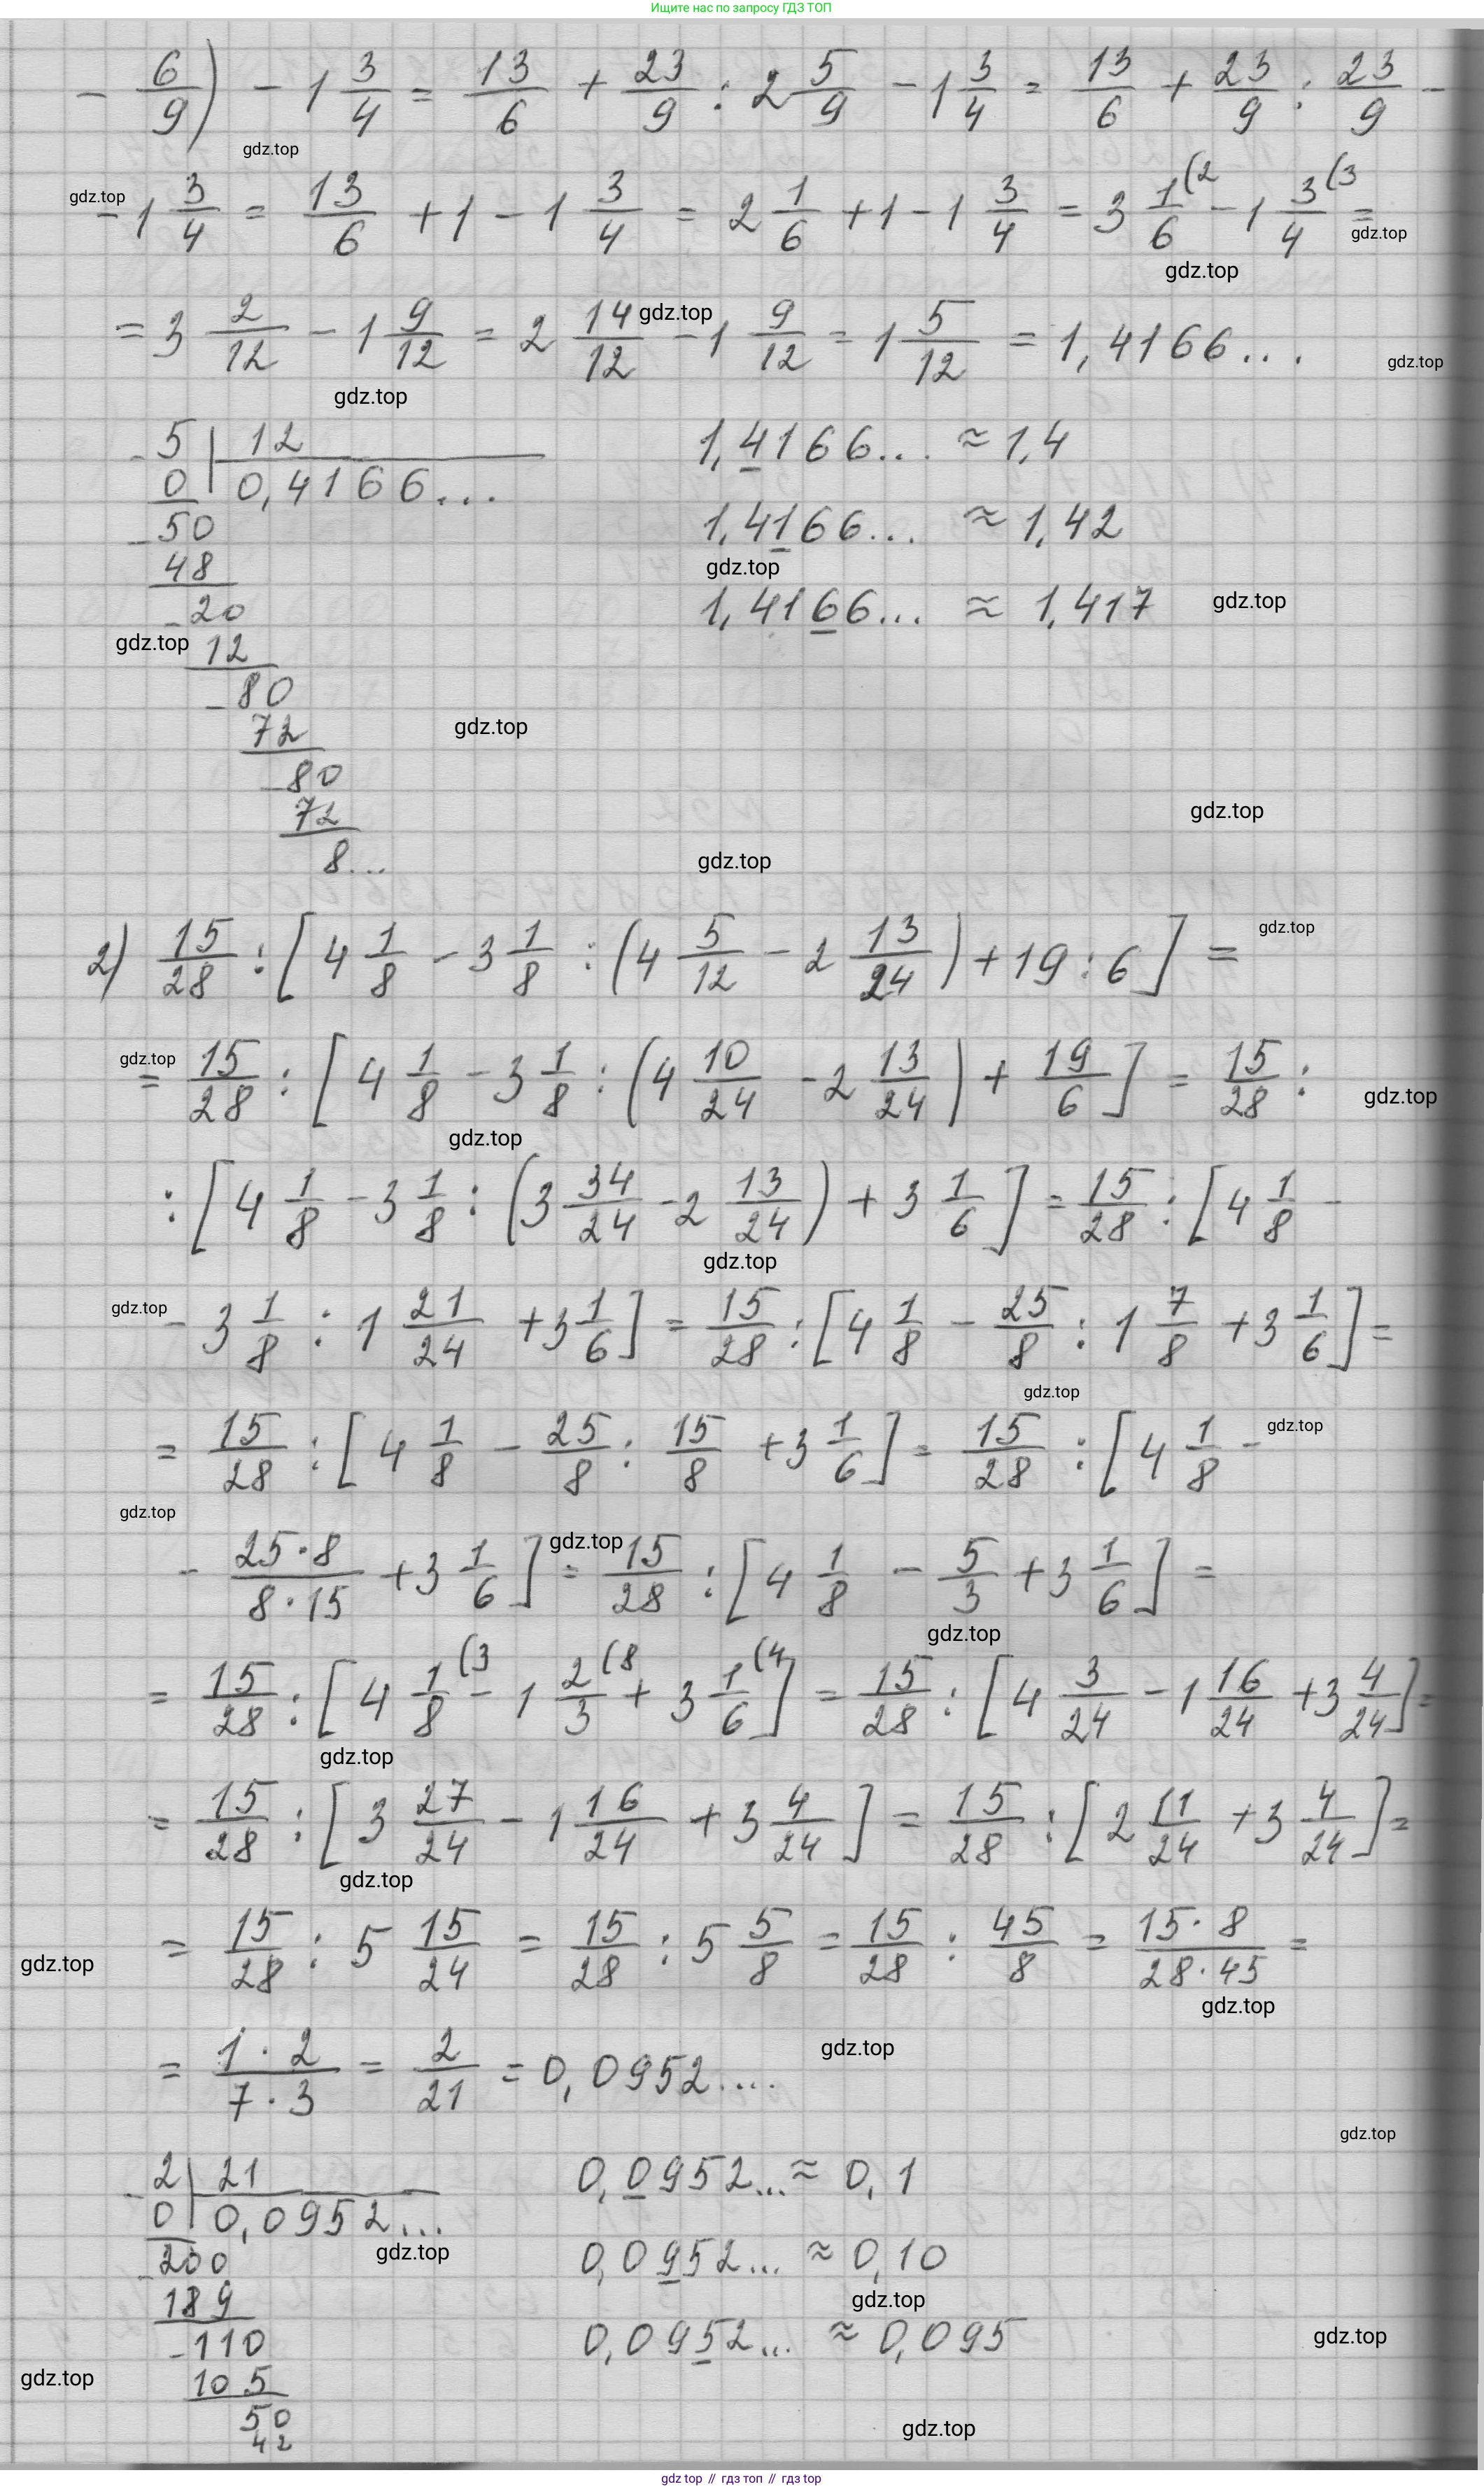 Ищите нас по запросу ГДЗ ТОП
- 6/9) - 1 3/4 = 13/6 + 23/9 : 2 5/9 - 1 3/4 = 13/6 + 23/9 : 23/9 -
gdz.top
gdz.top
- 1 3/4 = 13/6 + 1 - 1 3/4 = 2 1/6 + 1 - 1 3/4 = 3 1/6 (2 - 1 3/4 (3 =
gdz.top
gdz.top
= 3 2/12 - 1 9/12 = 2 14/12 - 1 9/12 = 1 5/12 = 1,4166...
gdz.top
gdz.top
gdz.top
- 5 | 12
0 | 0,4166...
1,4166... ≈ 1,4
- 50
1,4166... ≈ 1,42
48
gdz.top
- 20
1,4166... ≈ 1,417
gdz.top
gdz.top
12
- 80
72
gdz.top
- 80
72
gdz.top
8...
gdz.top
2) 15/28 : [4 1/8 - 3 1/8 : (4 5/12 - 2 13/24) + 19 : 6] =
gdz.top
gdz.top
= 15/28 : [4 1/8 - 3 1/8 : (4 10/24 - 2 13/24) + 19/6] = 15/28 :
gdz.top
gdz.top
: [4 1/8 - 3 1/8 : (3 34/24 - 2 13/24) + 3 1/6] = 15/28 : [4 1/8 -
gdz.top
gdz.top
- 3 1/8 : 1 21/24 + 3 1/6] = 15/28 : [4 1/8 - 25/8 : 1 7/8 + 3 1/6] =
gdz.top
= 15/28 : [4 1/8 - 25/8 : 15/8 + 3 1/6] = 15/28 : [4 1/8 -
gdz.top
gdz.top
- 25·8/8·15 + 3 1/6] = 15/28 : [4 1/8 - 5/3 + 3 1/6] =
gdz.top
gdz.top
= 15/28 : [4 1/8 (3 - 1 2/3 (8 + 3 1/6 (4] = 15/28 : [4 3/24 - 1 16/24 + 3 4/24] =
gdz.top
= 15/28 : [3 27/24 - 1 16/24 + 3 4/24] = 15/28 : [2 11/24 + 3 4/24] =
gdz.top
= 15/28 : 5 15/24 = 15/28 : 5 5/8 = 15/28 : 45/8 = 15·8/28·45 =
gdz.top
gdz.top
= 1·2/7·3 = 2/21 = 0,0952....
gdz.top
gdz.top
- 2 | 21
0 | 0,0952...
0,0952... ≈ 0,1
- 200
gdz.top
0,0952... ≈ 0,10
189
gdz.top
- 110
0,0952... ≈ 0,095
gdz.top
105
gdz.top
50
42
gdz.top
gdz top // гдз топ // гдз top